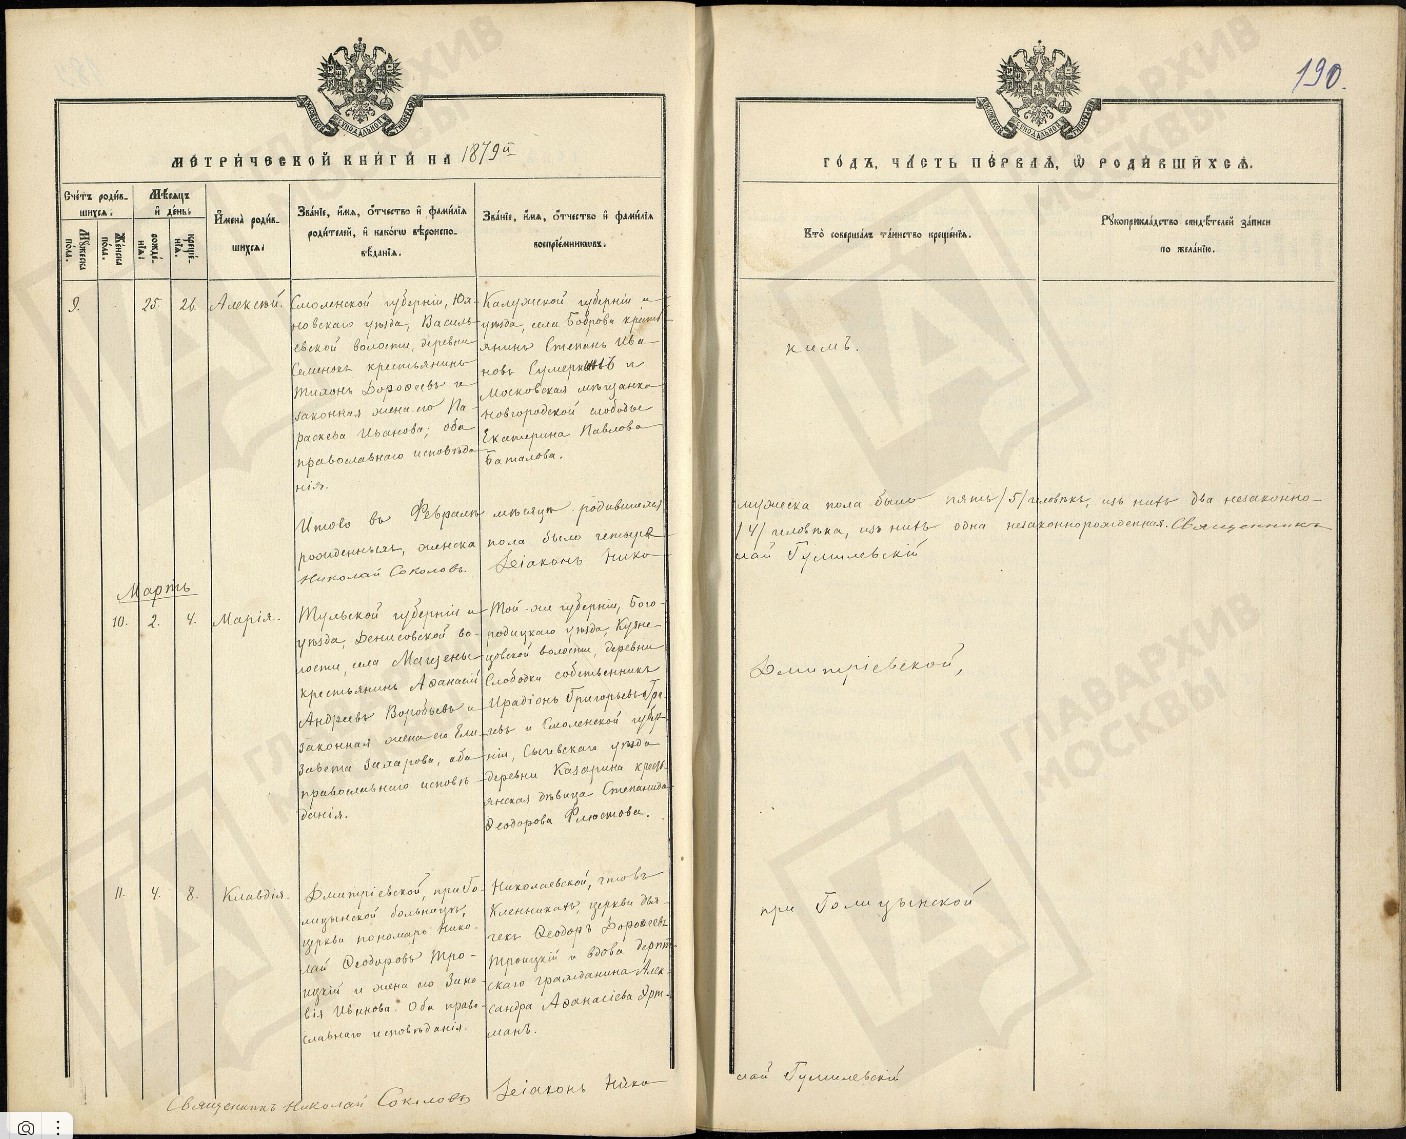 190.
МЕТРИЧЕСКОЙ КНИГИ НА 1879й
ГОДЪ, ЧАСТЬ ПЕРВАЯ, Ѡ РОДИВШИХСЯ.
Счетъ родившихся.
Мужеска пола.
Женска пола.
Мѣсяцъ и день.
рожденія.
крещенія.
Имена родившихся.
Званіе, имя, отчество и фамилія родителей, и какогѡ вѣроисповѣданія.
Званіе, имя, отчество и фамилія воспріемниковъ.
Кто совершалъ таинство крещенія.
Рукоприкладство свидѣтелей записи по желанію.
9. 25. 26. Алексѣй.
Смоленской губерніи, Юх-
новскаго уѣзда, Василь-
евской волости, деревни
Семенокъ крестьянинъ
Тихонъ Дороѳеевъ и
законная жена его Па-
раскева Иванова; оба
православнаго исповѣда-
нія.
Калужской губерніи и
уѣзда, села Боброва кресть-
янинъ Степанъ Ива-
новъ и
Московская мѣщанка
Новгородской слободы
Екатерина Павлова
Баталова.
нимъ.
Итого въ Февралѣ мѣсяцѣ родившихся мужеска пола было пять /5/ человѣкъ, изъ нихъ два незаконно-
рожденныхъ, женска пола было четыре /4/ человѣка, изъ нихъ одна незаконнорожденная. Священникъ
Николай Соколовъ. Діаконъ Николай Гумилевскій
Мартъ
10. 2. 4. Марія.
Тульской губерніи и
уѣзда, Денисовской во-
лости, села Мащены
крестьянинъ Аѳанасій
Андреевъ Воробьевъ и
законная жена его Ели-
завета Захарова, оба
православнаго исповѣ-
данія.
Той-же губерніи, Бого-
родицкаго уѣзда, Кузне-
цовской волости, деревни
Слободки собственникъ
Иродіонъ Григорьевъ
и Смоленской губер-
ніи, Сычевскаго уѣзда
деревни Казарина кресть-
янская дѣвица Степанида
Ѳеодорова
Дмитріевской,
11. 4. 8. Клавдія.
Дмитріевской, при Го-
лицынской больницѣ,
церкви пономарь Нико-
лай Ѳеодоровъ Тро-
ицкій и жена его Зино-
вія Иванова. Оба право-
славнаго исповѣданія.
Николаевской, что въ
Кленникахъ, церкви дья-
чекъ Ѳеодоръ Дороѳеевъ
Троицкій и вдова дерпт-
скаго гражданина Алек-
сандра Аѳанасіева Орт-
манъ.
при Голицынской
Священникъ Николай Соколовъ Діаконъ Николай Гумилевскій
ГЛАВАРХИВ
МОСКВЫ